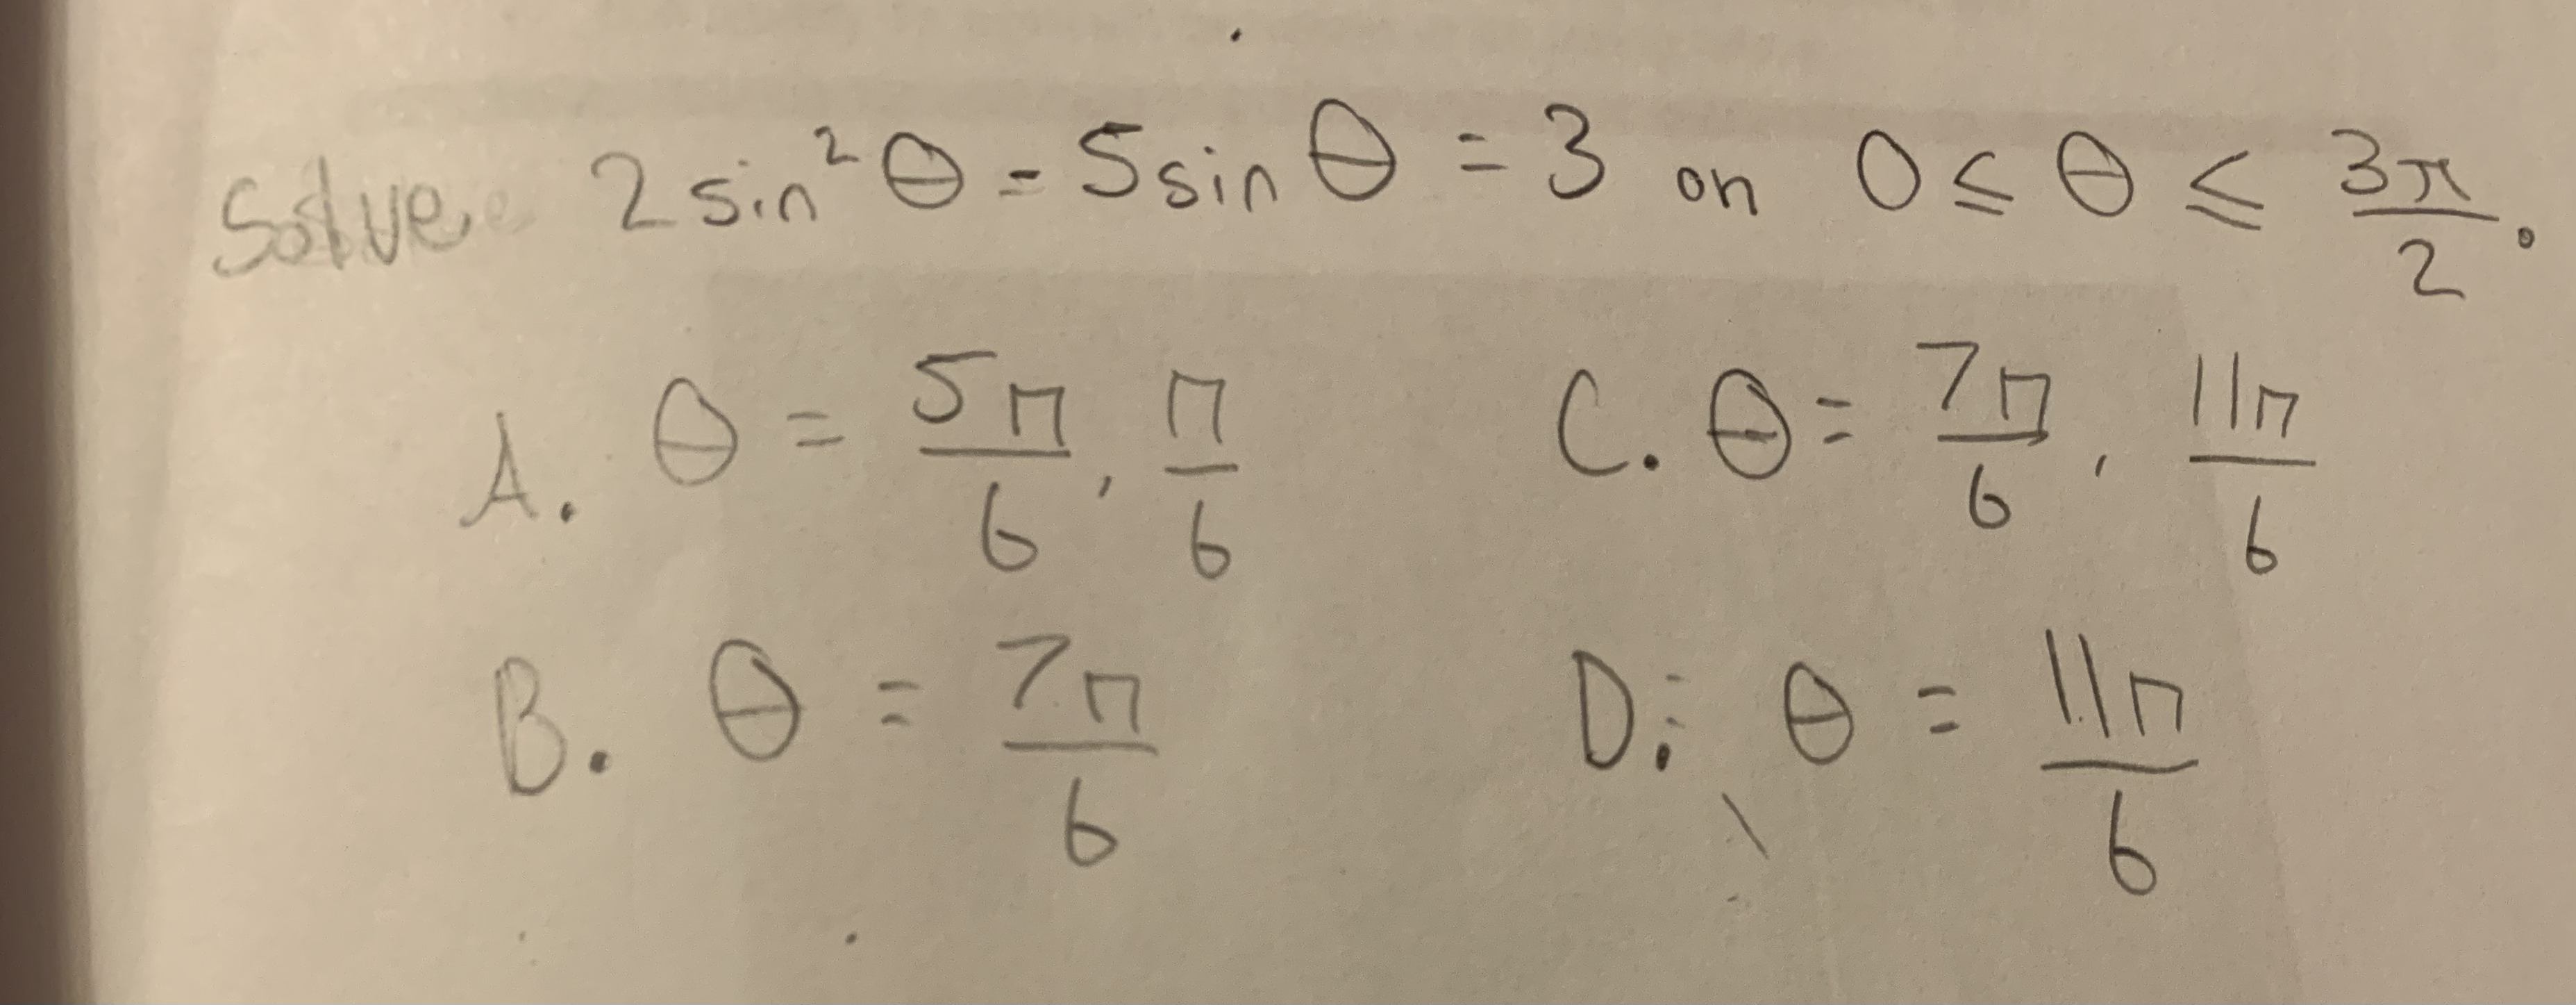 Solve 2sin²θ - 5sinθ = 3 on 0 ≤ θ ≤ 3π/2.
A. θ = 5π/6, π/6
C. θ = 7π/6, 11π/6
B. θ = 7π/6
D. θ = 11π/6